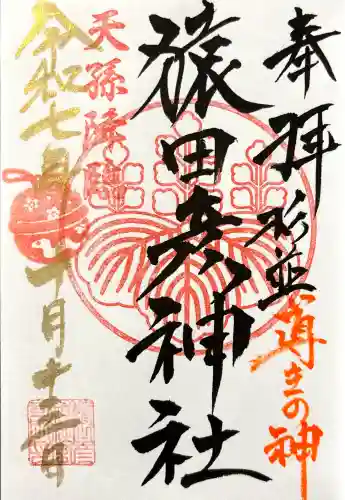 奉拝
杉並
導きの神
猿田彦神社
天孫降臨
令和七年十月十三日